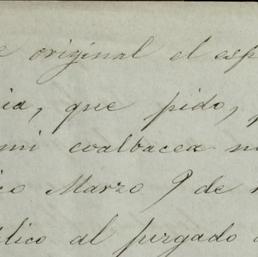 original el esp
que pido,
mi coalbacea
Marzo 9 de
al juzgado